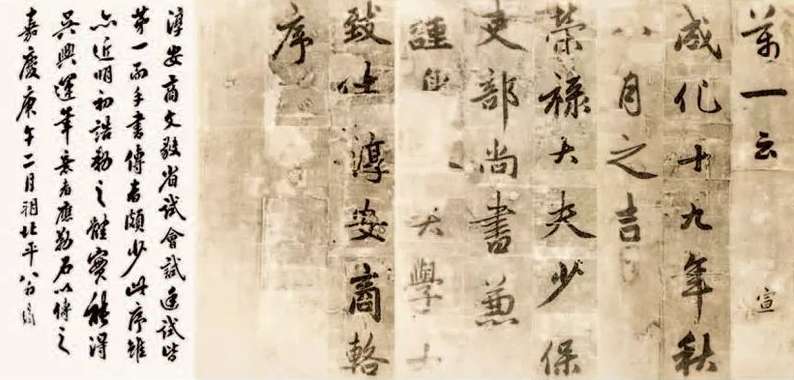 萬一云
宣
成化十九年秋
八月之吉
榮祿大夫少保
吏部尚書兼
謹身大學士
致仕淳安商輅
序
淳安商文毅省試會試廷試皆
第一而手書傳者頗少此序雖
亦近明初誥勅之體實能得
吳興運筆意者應勒石以傳之
嘉慶庚午二月北平